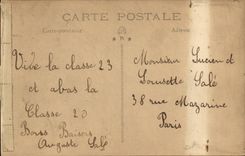 CARTE POSTALE
Correspondance
Adresse
Vive la classe 23
et abas la
Classe 20
Bons Baisers
Auguste Salé
Monsieur Lucien et
Lousette Salé
38 rue Mazarine
Paris